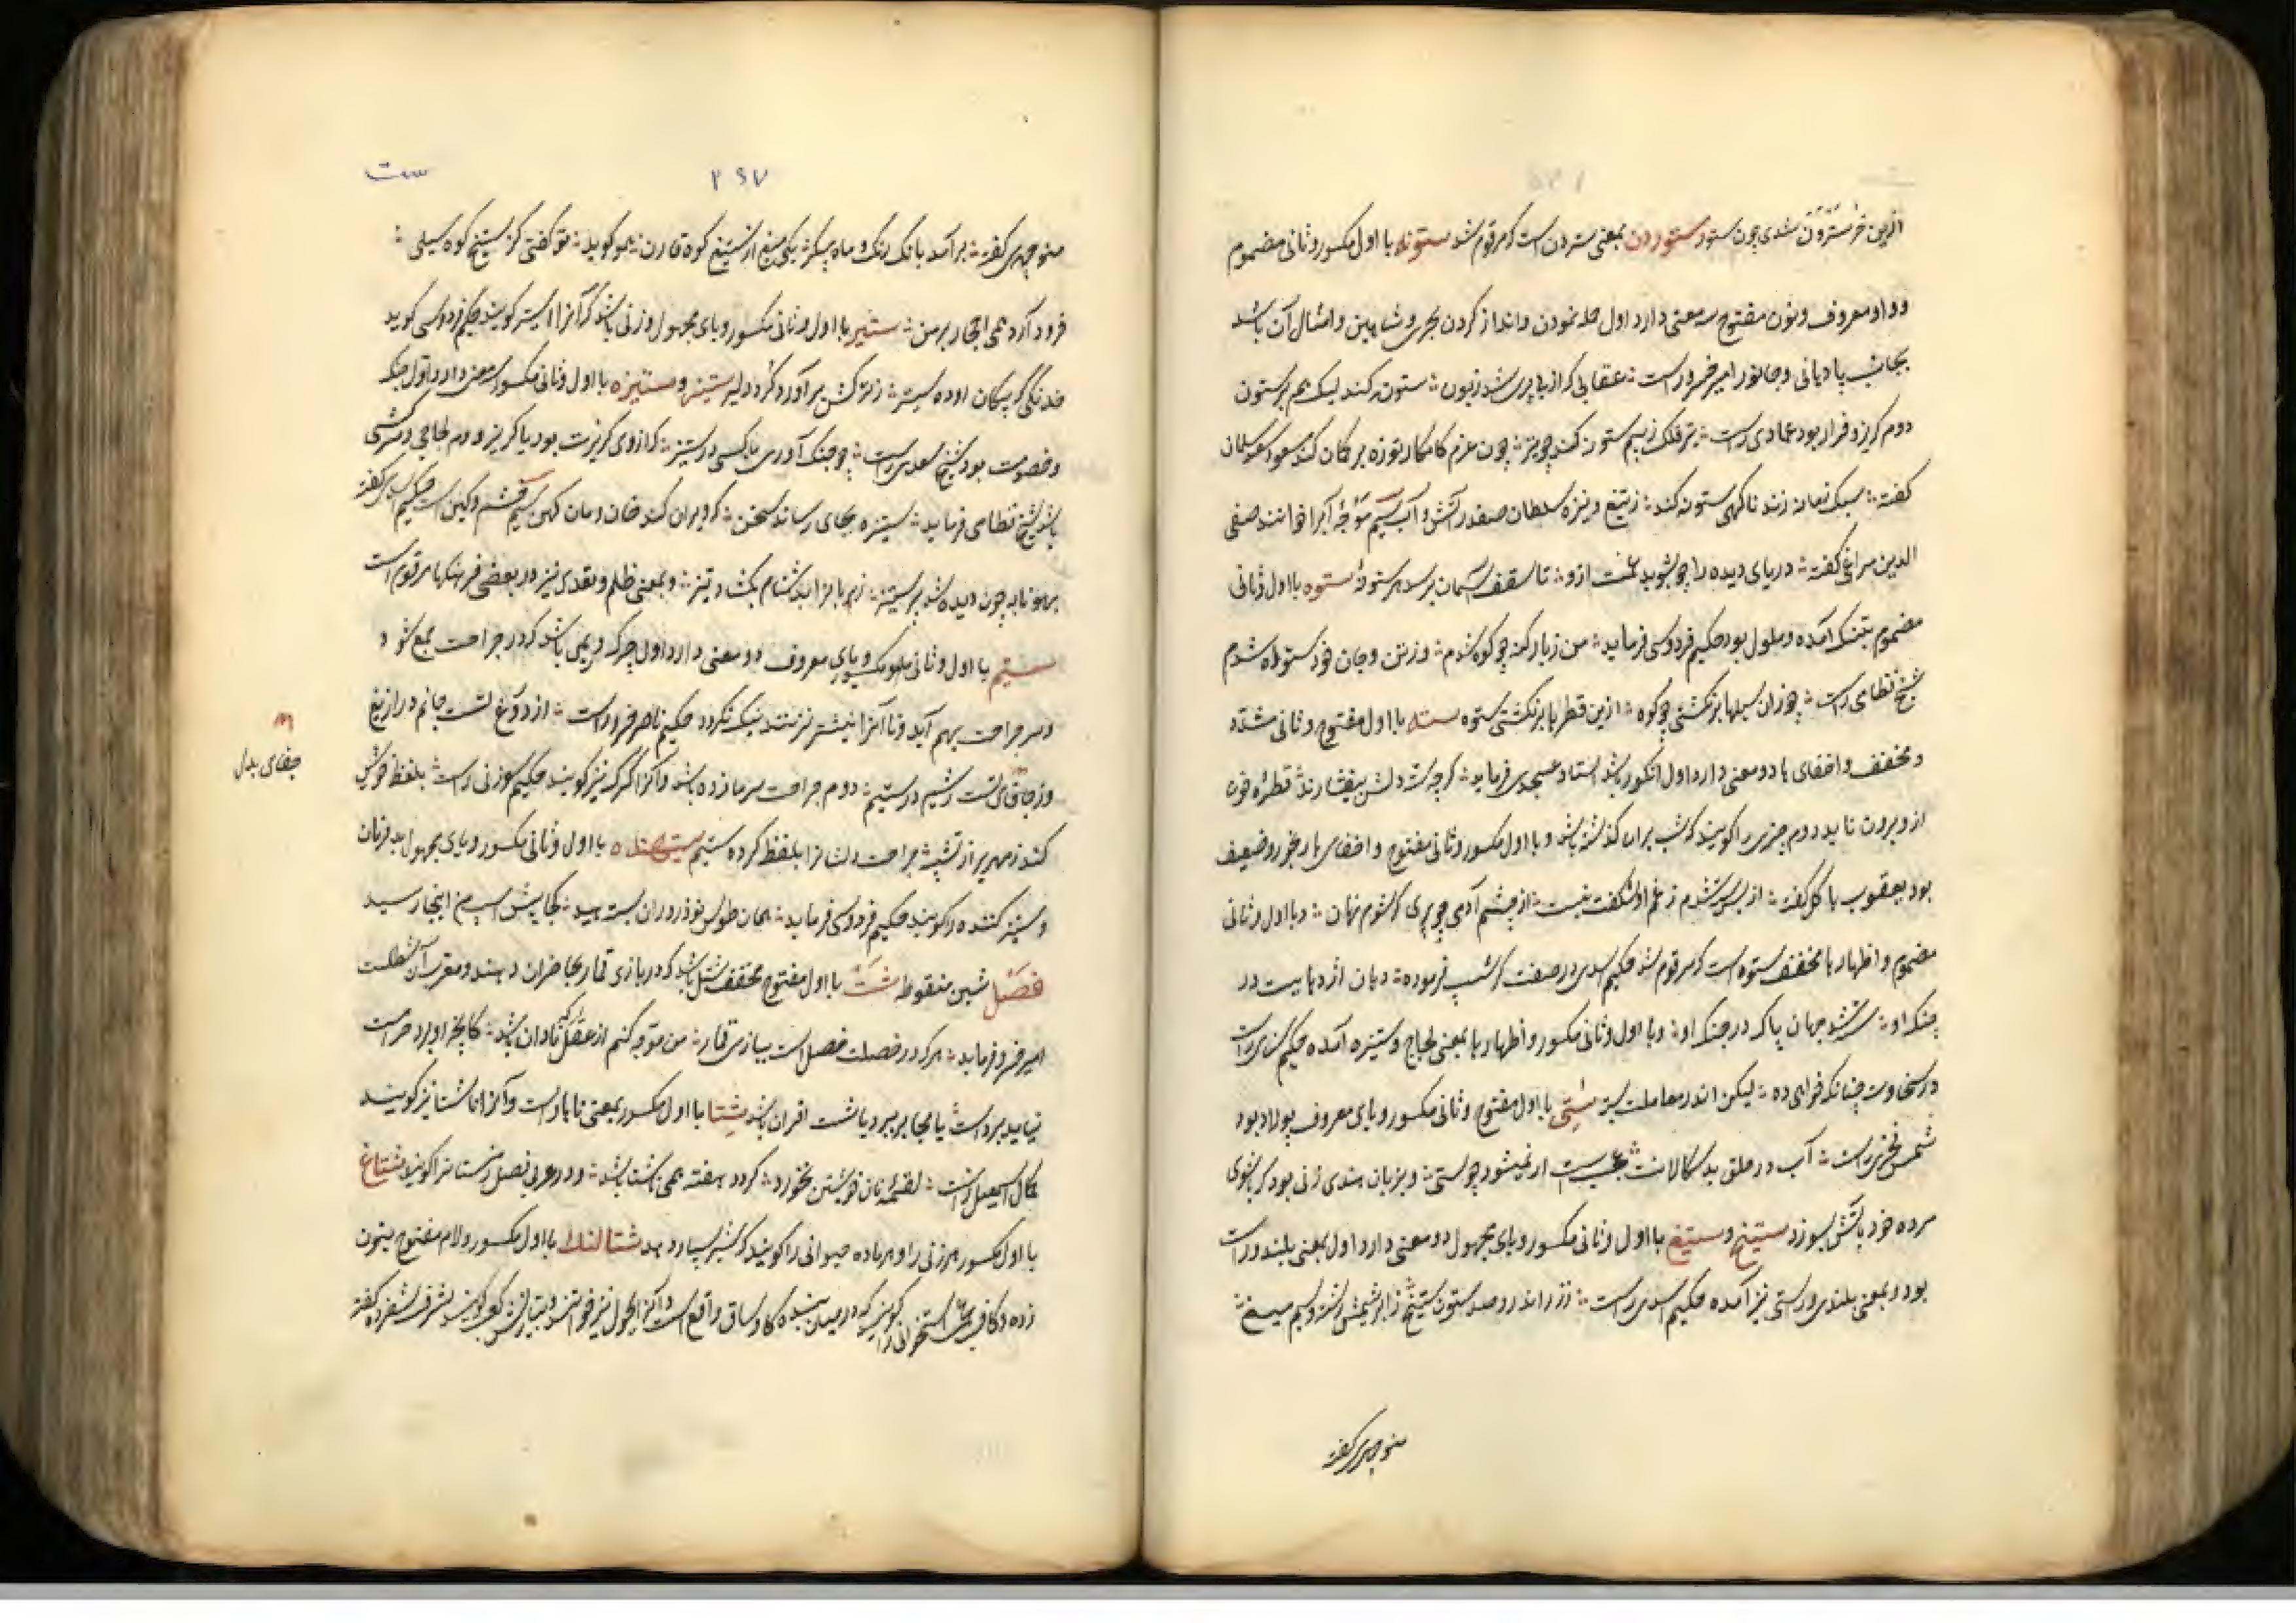 ازین خر سترون شدی چون ستور ستوردن بمعنی ستردن است که مرقوم شد ستونه با اول مکسور و ثانی مضموم
و واو معروف و نون مفتوح سه معنی دارد اول حمله نمودن و انداز کردن بحری و شاهین و امثال آن باشد
بجانب پادیانی و جانور امیر خسرو راست عقابی که از بی پری شد زبون ستون کند لیک هم بر ستون
دوم گریز و فرار بود عمادی راست فلک ز بیم ستونه کند چون عزم کامکار تو زه بر کمان کند مسعود سعد سلمان
گفته سبک زمانه زند ناگهی ستونه کند ز تیغ و نیزه سلطان صفدر آتش و آب سیم موجه آب را خوانند صفی
الدین مراغی گفته دریای دیده را چو بشوید غمت ازو تا سقف آسمان برسد هر ستونه ستوه با اول و ثانی
مضموم بتنگ آمده و ملول بود حکیم فردوسی فرماید من ز بار گنه چو کوه شدم وز تن و جان خود ستوه شدم
شیخ نظامی راست چو زان سیلها بر نگشتی چو کوه ازین قطرها بر نگشتی ستوه سته با اول مفتوح و ثانی مشدد
و مخفف و اخفای ها دو معنی دارد اول انگور باشد استاد عسجدی فرماید گرچه سته دلش بیفشارند قطره خون
ازو برون ناید دوم چیزی را گویند که شب بران گذشته باشد و با اول مکسور و ثانی مفتوح و اخفای ها رنجور و ضعیف
بود یعقوب باکل گفته از بس سته شدم ز غم او شگفت نیست از چشم آدمی چو پری گر شوم نهان و با اول و ثانی
مضموم و اظهار ها مخفف ستوه است که مرقوم شد حکیم اسدی در صفت گرشسپ فرموده دمان اژدهایست در
جنگ او سته شد جهان پاک در چنگ او و با اول و ثانی مکسور و اظهار ها بمعنی لجاج و ستیزه آمده حکیم سنایی راست
در سخاوت چنانکه خواهی ده لیکن اندر معاملت بسته ستی با اول مفتوح و ثانی مکسور و یای معروف پولاد بود
شمس فخری راست آب در حلق بدسگالانت عجب است ار نمیشود چو ستی و بزبان هندی زنی بود که با شوی
مرده خود باتش بسوزد ستیخ و ستیغ با اول و ثانی مکسور و یای مجهول دو معنی دارد اول بمعنی بلند و راست
بود و بمعنی بلندی و راستی نیز آمده حکیم اسدی راست ز زر اندرو صد ستون ستیخ ز ابریشمش رشته و سیم میخ
منوچهری گفته
۲۶۷
ست
منوچهری گفته برآمد بانگ زنگ و ماه پیکر یکی میغ از ستیغ کوه قارن همو گوید تو گفتی کز ستیخ کوه سیلی
فرود آرد همی احجار بر من ستیر با اول و ثانی مکسور و یای مجهول وزنی باشد که آنرا استیر گویند حکیم فردوسی گوید
خدنگی که پیکان او ده ستیر ز ترکش برآورد گرد دلیر ستیز و ستیزه با اول و ثانی مکسور سه معنی دارد اول جنگ
و خصومت بود شیخ سعدی راست چو جنگ آوری با کسی در ستیز که از وی گزیرت بود یا گریز دوم لجاجی و سرکشی
باشد شیخ نظامی فرماید ستیزه بجای رساند سخن که ویران کند خان و مان کهن سیم خشم و کین است حکیم اسدی گفته
چون دیده شد پر ستیز و بمعنی ظلم و تعدی نیز در بعضی فرهنگها مرقوم است
ستیم با اول و ثانی مکسور و یای معروف دو معنی دارد اول چرک و ریمی باشد که در جراحت جمع شود
و سر جراحت بهم آید و تا آنرا نیشتر نزنند نیک نگردد حکیم ناصر خسرو راست از دروغ تست جانم در ازیغ
وز جفای تست ریشم در ستیم دوم جراحت سرما زده باشد و آنرا گرگ نیز گویند حکیم سوزنی راست بلفظ خوش
کند زمهریر از تپش جراحت دلشانرا بلفظ کرده ستیم ستیهنده با اول و ثانی مکسور و یای مجهول بی فرمان
و ستیزه کننده را گویند حکیم فردوسی فرماید همان طوس نوذر دران بستهید کجا پیش اسپ من اینجا رسید
فصل شین منقوطه شت با اول مفتوح مخفف شتل باشد که در بازی قمار بحاضران دهند و معرب آن شطل است
امیر خسرو فرماید هرکه در خصلت فصل است ببازی قمار من متوجه کنم از عقل که نادان باشد کانچه او برد حرامست
نیاید بردست یا بجا بر ببرد یا شت اقران باشد شتا با اول مکسور بمعنی ناهار است و آنرا ناشتا نیز گویند
کمال اسمعیل راست لقمه نان خویشتن نخورد گر دو هفته همی شتا باشد و در عربی فصل زمستانرا گویند شتاغ
با اول مکسور هر زنی را و هر ماده حیوانی را گویند که شیر بسیار دهد شتالنگ با اول مکسور و لام مفتوح بنون
زده و کاف عجمی استخوانی را گویند که در میان بندگاه پا و ساق واقع است و آنرا بجول نیز خوانند و بتازیش کعب گویند شرف شفروه گفته
جفای بدل